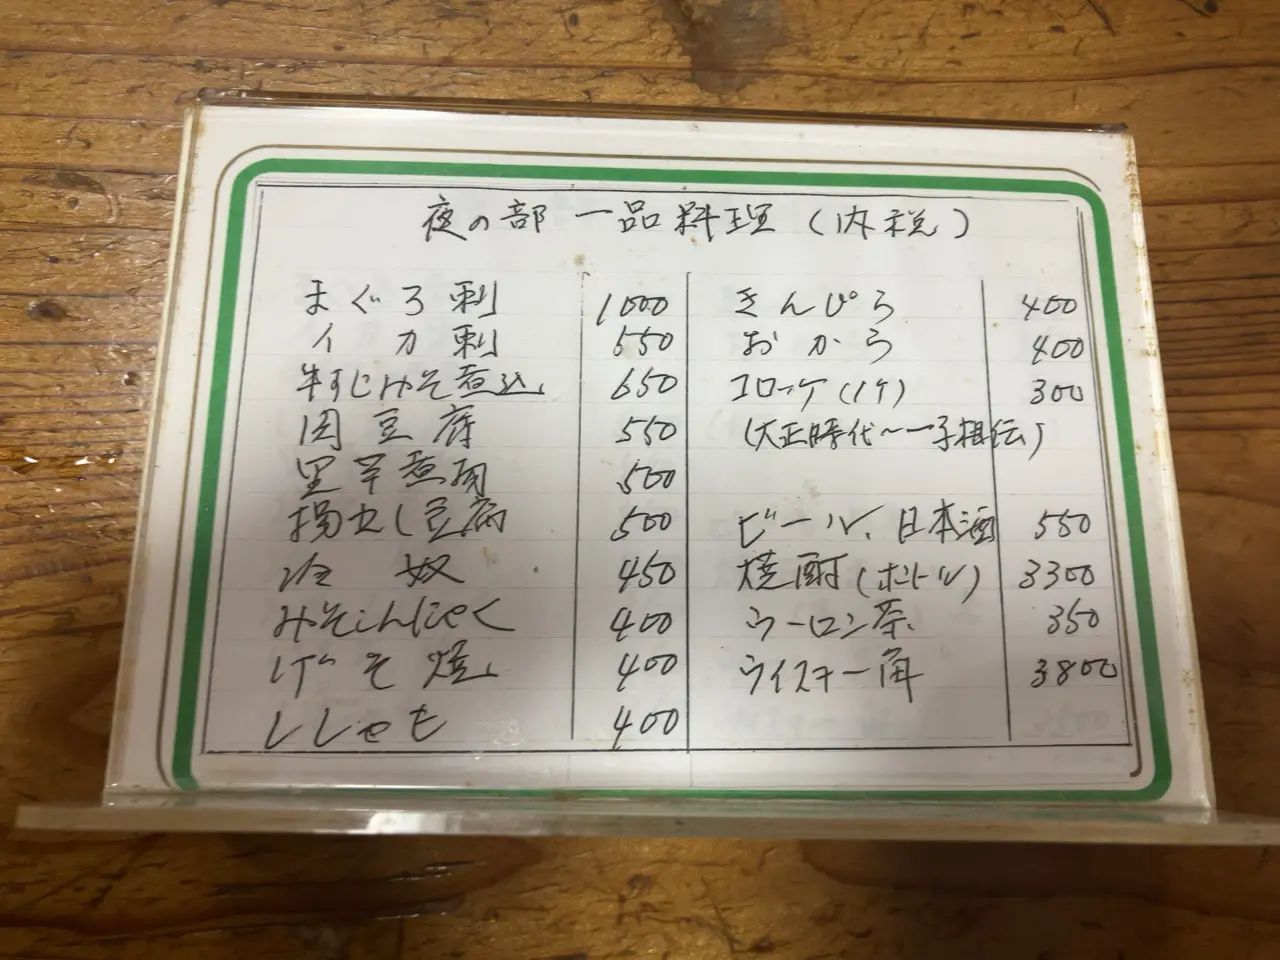 夜の部 一品料理 (内税)
まぐろ刺 1000
イカ刺 550
牛すじみそ煮込 650
肉豆腐 550
里芋煮物 500
揚出し豆腐 500
冷奴 450
みそこんにゃく 400
げそ焼 400
ししゃも 400
きんぴら 400
おから 400
コロッケ(1ケ) 300
(大正時代〜一子相伝)
ビール、日本酒 550
焼酎(ボトル) 3300
ウーロン茶 350
ウイスキー角 3800